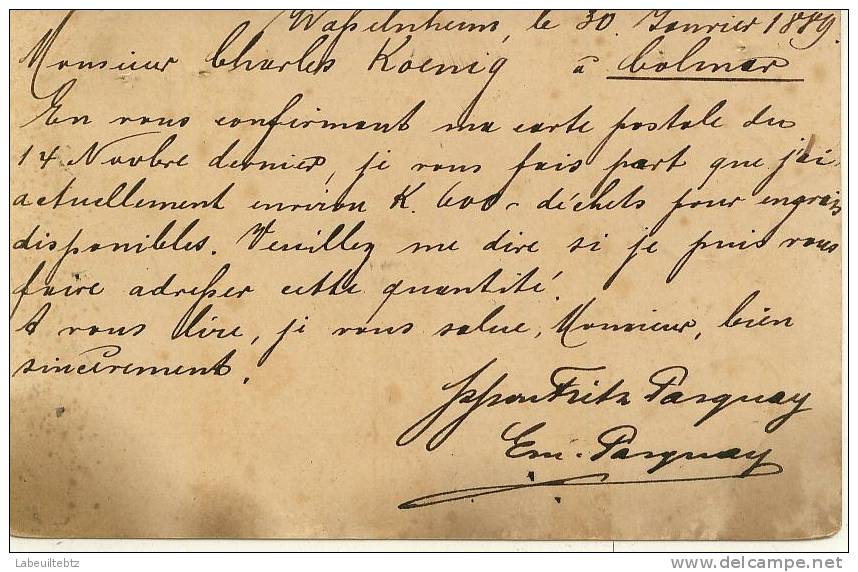 Wasselnheim, le 30. Janvier 1889.
Monsieur Charles Koenig à Colmar
En vous confirmant ma carte postale du
14 Novbre dernier, je vous fais part que j'ai
actuellement environ K. 600 - déchets pour engrais
disponibles. Veuillez me dire si je puis vous
faire adresser cette quantité.
A vous lire, je vous salue, Monsieur, bien
sincèrement.
Fritz Pasquay
Em. Pasquay
Labeuitebtz
www.delcampe.net